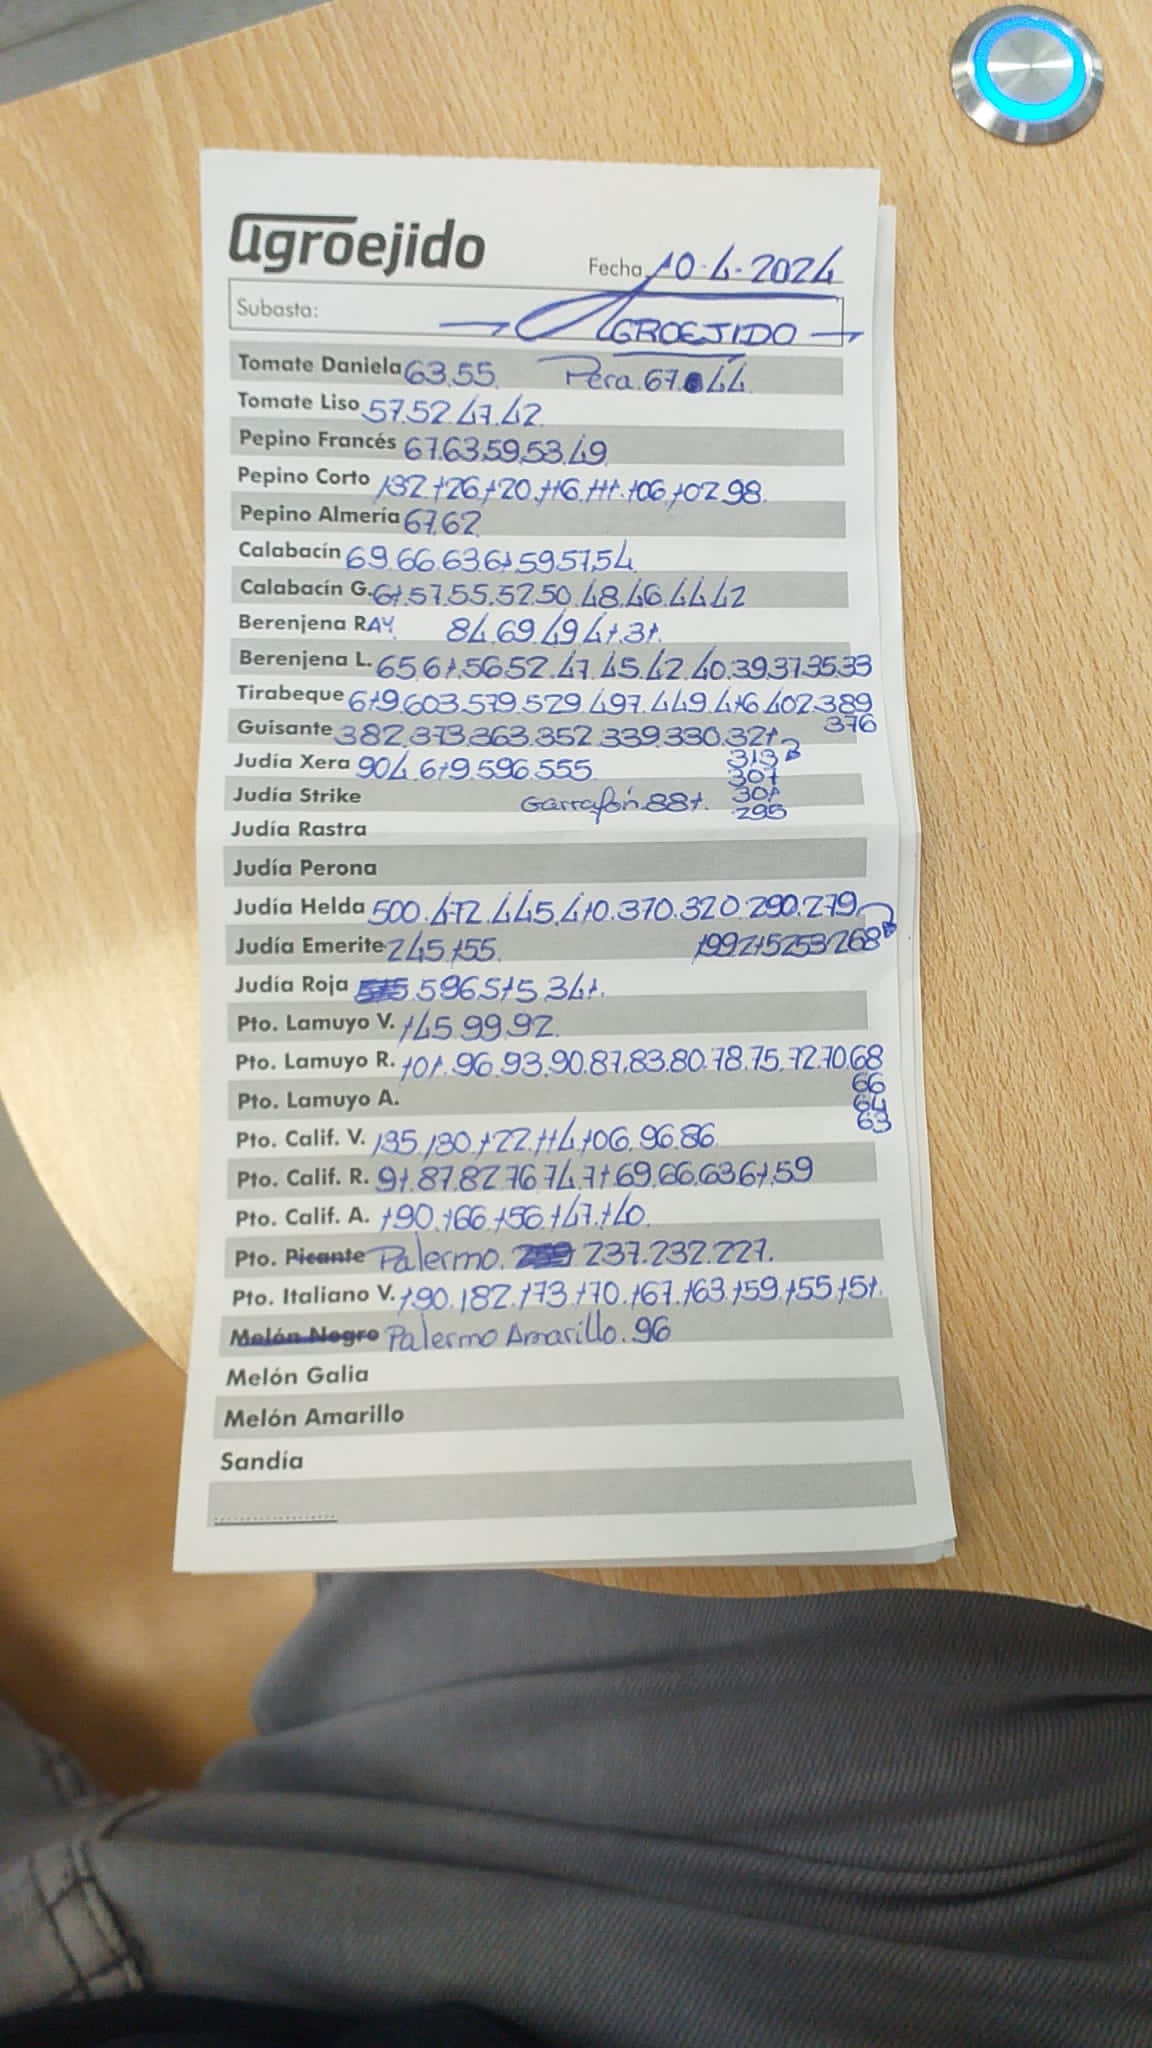 agroejido
Fecha 10-4-2024
Subasta: → AGROEJIDO →
Tomate Daniela 63.55 Pera.67.44
Tomate Liso 57.52.47.42
Pepino Francés 67.63.59.53.49
Pepino Corto 132.126.120.116.111.106.102.98.
Pepino Almería 67.62
Calabacín 69.66.63.61.59.57.54
Calabacín G. 61.57.55.52.50.48.46.44.42
Berenjena RAY. 84.69.49.41.31.
Berenjena L. 65.61.56.52.47.45.42.40.39.37.35.33
Tirabeque 619.603.579.529.497.449.416.402.389
376
Guisante 382.373.363.352.339.330.321
313
307
301
295
Judía Xera 904.619.596.555
Judía Strike Garrafón.881.
Judía Rastra
Judía Perona
Judía Helda 500.472.445.410.370.320.290.279
268
Judía Emerite 245.155.
Judía Roja 596.515.341.
Pto. Lamuyo V. 145.99.92.
Pto. Lamuyo R. 101.96.93.90.87.83.80.78.75.72.70.68
66
64
63
Pto. Lamuyo A.
Pto. Calif. V. 135.130.122.114.106.96.86
Pto. Calif. R. 91.87.82.76.74.71.69.66.63.61.59
Pto. Calif. A. 190.166.156.147.140.
Pto. Picante Palermo. 237.232.227.
Pto. Italiano V. 190.182.173.170.167.163.159.155.151.
Melón Negro Palermo Amarillo.96
Melón Galia
Melón Amarillo
Sandía